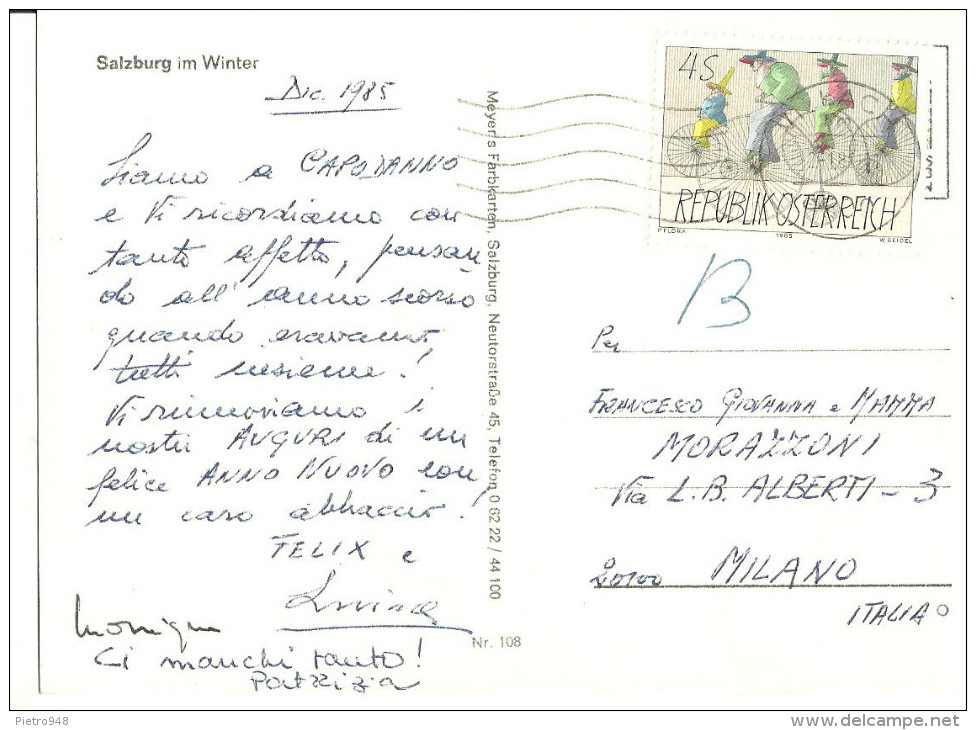 Salzburg im Winter
Dic. 1985
Siamo a CAPODANNO
e Vi ricordiamo con
tanto affetto, pensan
do all'anno scorso
quando eravamo
tutti insieme!
Vi rinnoviamo i
nostri AUGURI di un
felice ANNO NUOVO con
un caro abbraccio!
FELIX e
Luisa
Monique
Ci manchi tanto!
Patrizia
Meyer's Farbkarten, Salzburg, Neutorstraße 45, Telefon 0 62 22 / 44 100
Nr. 108
4S
REPUBLIK ÖSTERREICH
PFLORA 1985 W. SEIDEL
B
Per
FRANCESCO GIOVANNA e MAMMA
MORAZZONI
Via L.B. ALBERTI - 3
20100 MILANO
ITALIA
Pietro948
www.delcampe.net